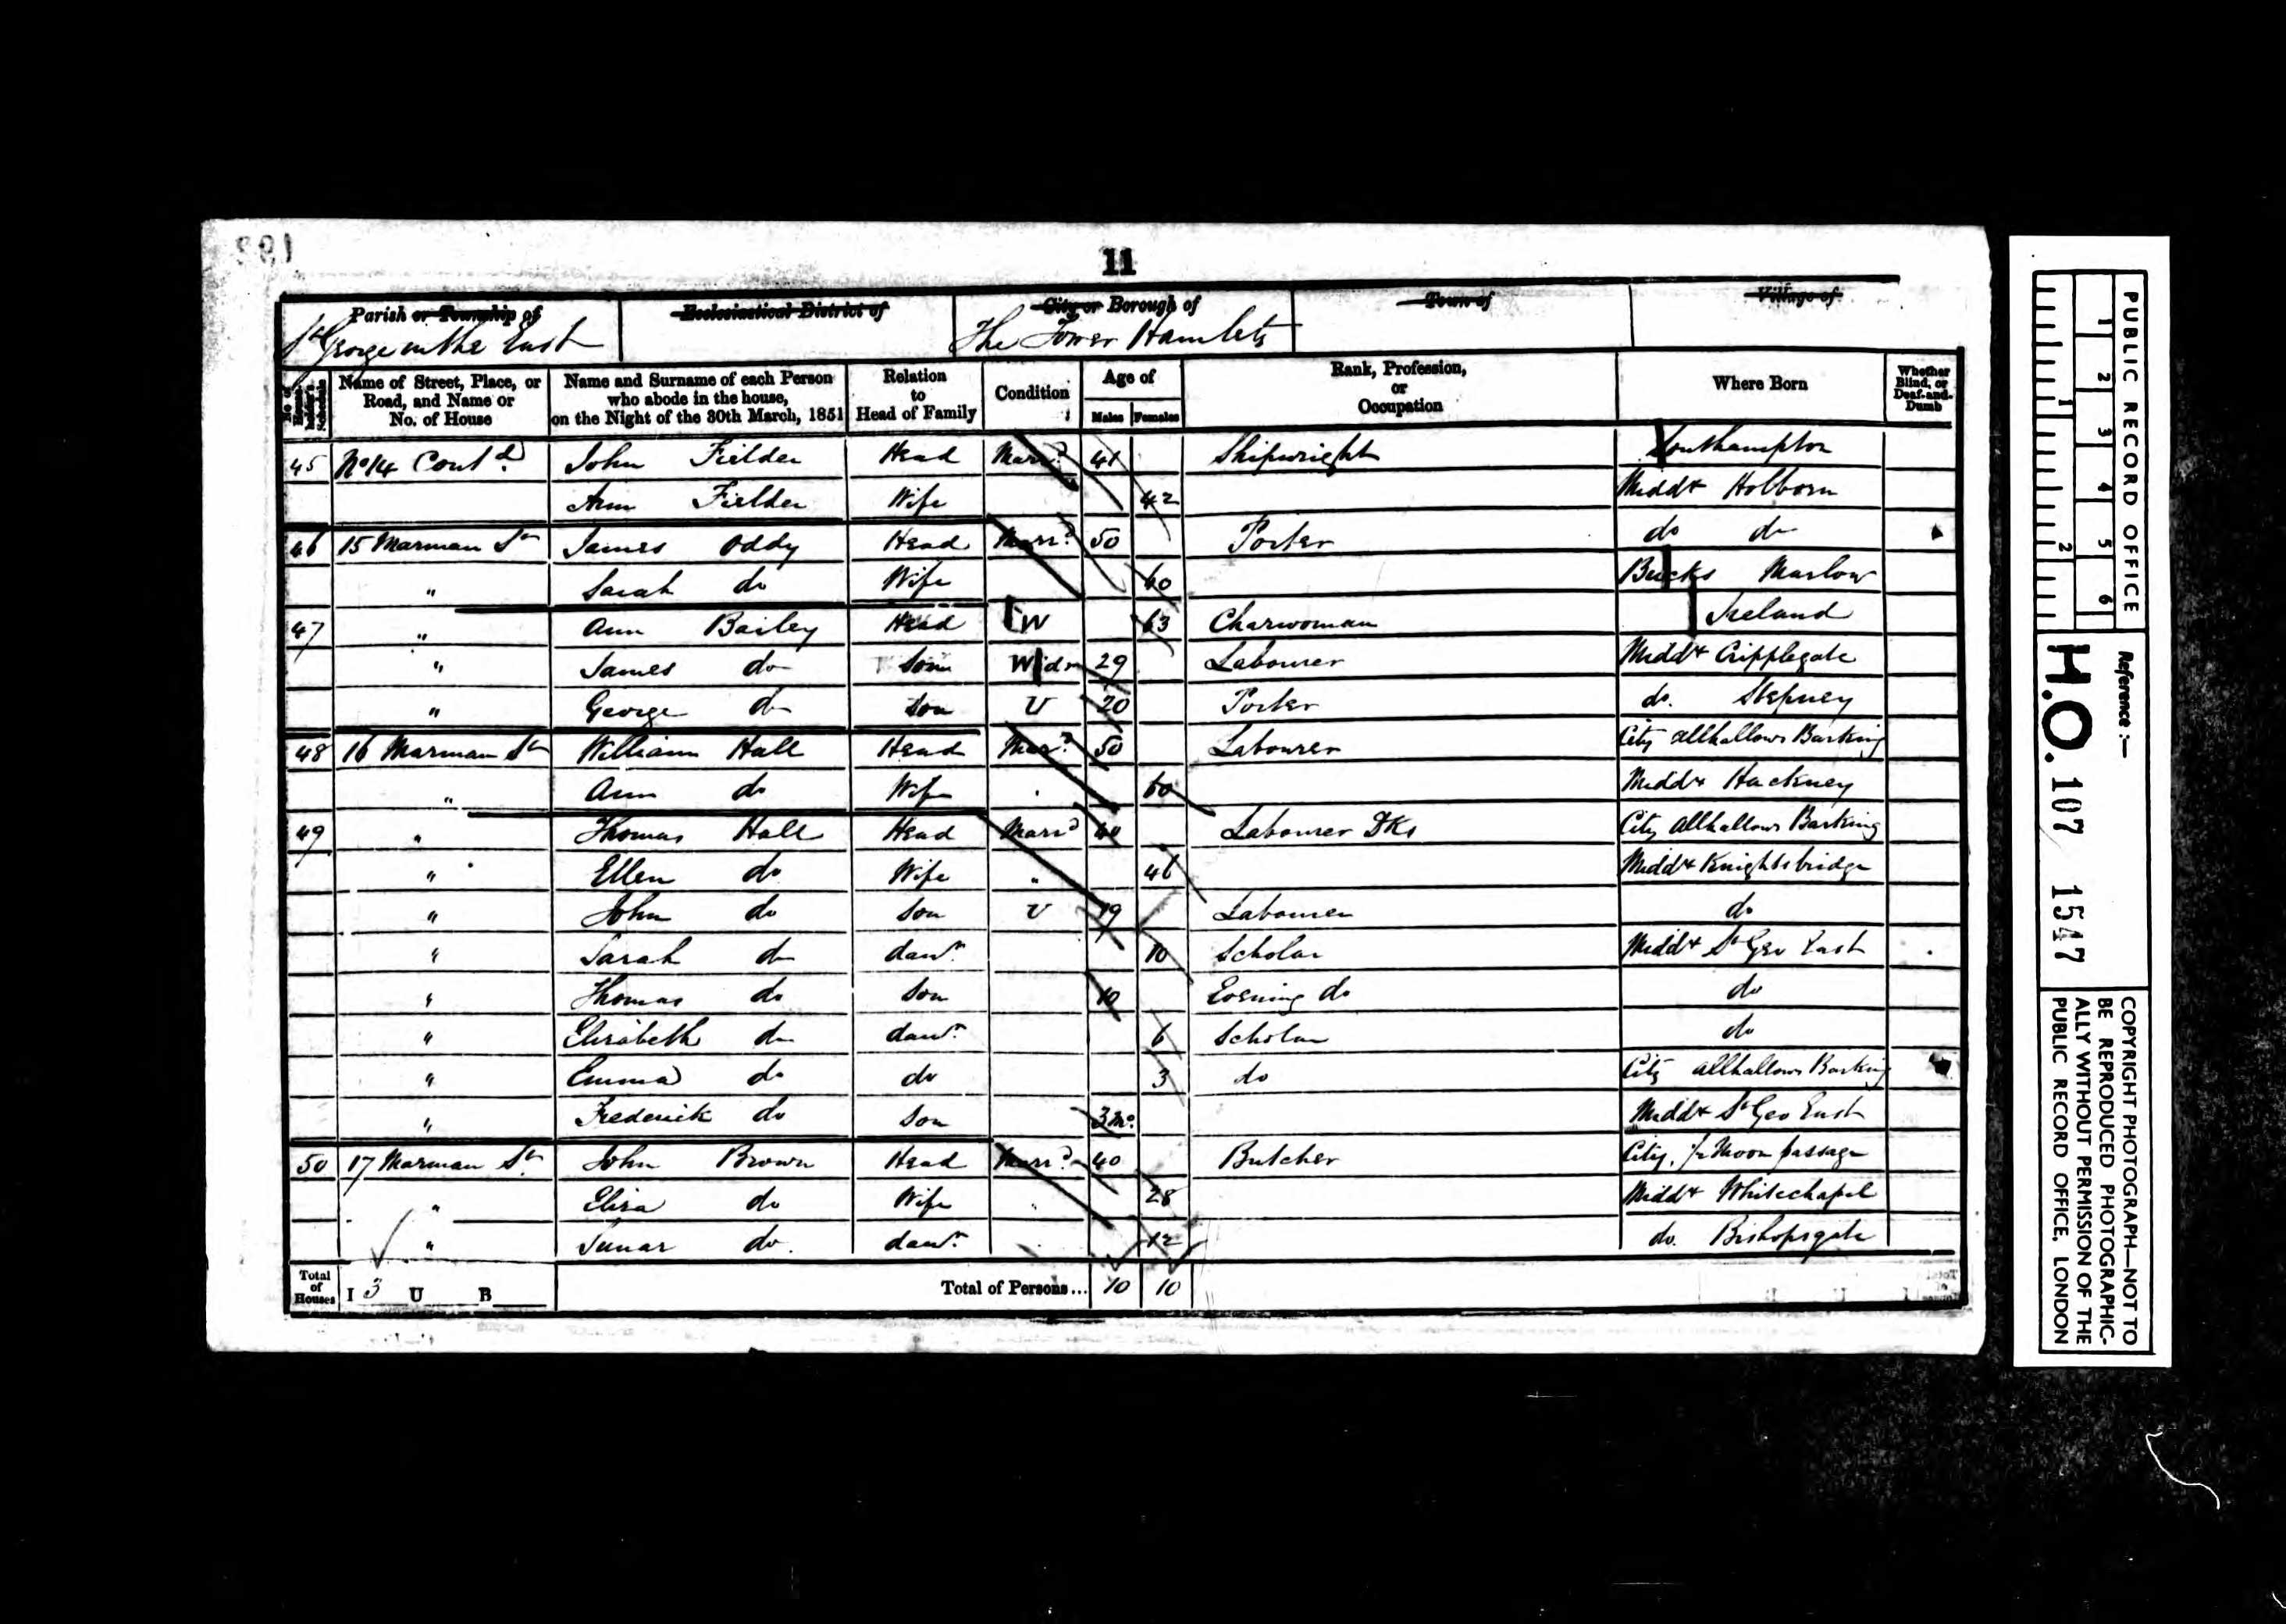 11
Parish or Township of
Ecclesiastical District of
City or Borough of
Town of
Village of
St George in the East
The Tower Hamlets
Name of Street, Place, or Road, and Name or No. of House
Name and Surname of each Person who abode in the house, on the Night of the 30th March, 1851
Relation to Head of Family
Condition
Age of
Males
Females
Rank, Profession, or Occupation
Where Born
Whether Blind, or Deaf-and-Dumb
45 No 14 Contd. John Fielder Head Marrd 41 Shipwright Southampton
Ann Fielder Wife 42 Middx Holborn
46 15 Marman St James Oddy Head Marrd 50 Porter do do
" Sarah do Wife 60 Bucks Marlow
47 " Ann Bailey Head W 63 Charwoman Ireland
" James do Son Widr 29 Labourer Middx Cripplegate
" George do Son U 20 Porter do. Stepney
48 16 Marman St William Hall Head Mard 50 Labourer City Allhallows Barking
" Ann do Wife 60 Middx Hackney
49 " Thomas Hall Head Marrd 40 Labourer DKs City Allhallows Barking
" Ellen do Wife " 46 Middx Knightsbridge
" John do Son U 19 Labourer do
" Sarah do dawr. 10 Scholar Middx St Geo East
" Thomas do Son 10 Evening do do
" Elizabeth do dawr. 6 Scholar do
" Emma do do 3 do City Allhallows Barking
" Frederick do Son 3 mo. Middx St Geo East
50 17 Marman St. John Brown Head Marrd. 40 Butcher City, Moon passage
" Eliza do Wife 28 Middx Whitechapel
" do. dawr. 12 do. Bishopsgate
Total of Houses I 3 U B Total of Persons... 10 10
PUBLIC RECORD OFFICE
1 2 3 4 5 6
1 2
Reference :—
H.O. 107 1547
COPYRIGHT PHOTOGRAPH—NOT TO
BE REPRODUCED PHOTOGRAPHIC-
ALLY WITHOUT PERMISSION OF THE
PUBLIC RECORD OFFICE, LONDON